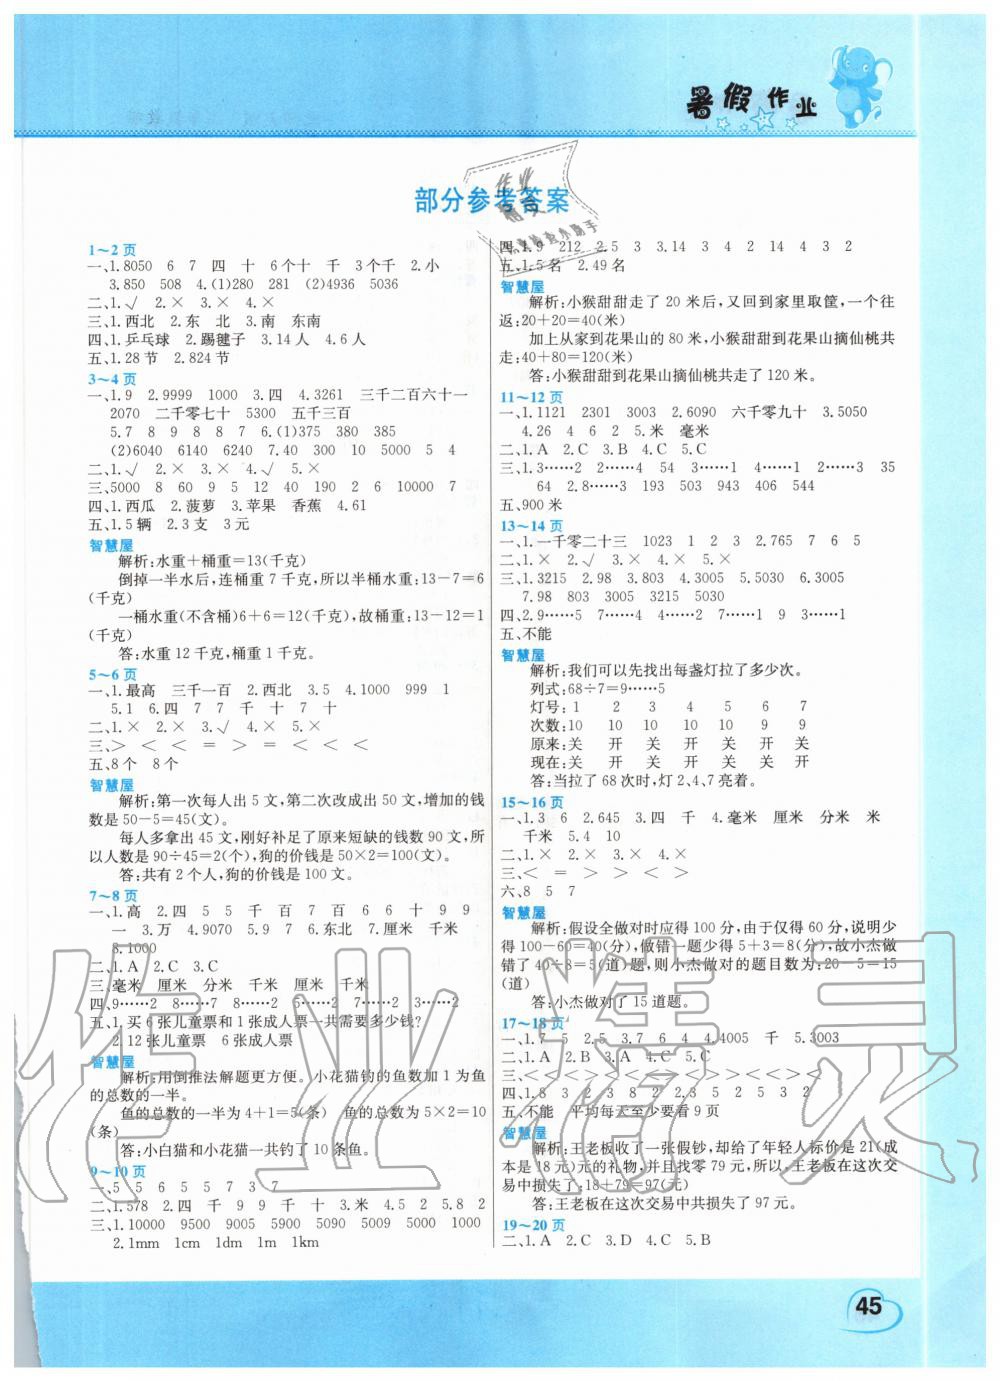 暑假作业
部分参考答案
1～2页
一、1.8050 6 7 四 十 6个十 千 3个千 2.小
3.850 508 4.(1)280 281 (2)4936 5036
二、1.√ 2.× 3.× 4.×
三、1.西北 2.东 北 3.南 东南
四、1.乒乓球 2.踢毽子 3.14人 4.6人
五、1.28节 2.824节
3～4页
一、1.9 2.9999 1000 3.四 4.3261 三千二百六十一
2070 二千零七十 5300 五千三百
5.7 8 9 8 8 7 6.(1)375 380 385
(2)6040 6140 6240 7.40 300 10 5000 5 4
二、1.√ 2.× 3.× 4.√ 5.×
三、5000 8 60 9 5 12 40 190 2 6 10000 7
四、1.西瓜 2.菠萝 3.苹果 香蕉 4.61
五、1.5辆 2.3支 3元
智慧屋
解析:水重＋桶重＝13(千克)
倒掉一半水后,连桶重7千克,所以半桶水重:13－7＝6
(千克)
一桶水重(不含桶)6＋6＝12(千克),故桶重:13－12＝1
(千克)
答:水重12千克,桶重1千克。
5～6页
一、1.最高 三千一百 2.西北 3.5 4.1000 999 1
5.1 6.四 7 7 千 十 7 十
二、1.× 2.× 3.√ 4.× 5.×
三、＞ ＜ ＜ ＝ ＞ ＝ ＜ ＜ ＜
五、8个 8个
智慧屋
解析:第一次每人出5文,第二次改成出50文,增加的钱
数是50－5＝45(文)。
每人多拿出45文,刚好补足了原来短缺的钱数90文,所
以人数是90÷45＝2(个),狗的价钱是50×2＝100(文)。
答:共有2个人,狗的价钱是100文。
7～8页
一、1.高 2.四 5 5 千 百 7 百 6 6 十 9 9
一 3.万 4.9070 5.9 7 6.七 北 7.厘米 千米
8.1000
二、1.A 2.C 3.C
三、毫米 厘米 分米 千米 厘米 千米
四、9……2 8……7 6……2 5……2 3……2
五、1.买6张儿童票和1张成人票一共需要多少钱?
2.12张儿童票 6张成人票
智慧屋
解析:用倒推法解题更方便。小花猫钓的鱼数加1为鱼
的总数的一半。
鱼的总数的一半为4＋1＝5(条) 鱼的总数为5×2＝10
(条)
答:小白猫和小花猫一共钓了10条鱼。
9～10页
一、5 5 6 5 5 7 3 7
二、1.578 2.四 千 9 9 千 十 3.米 4.5 2 5.8 2
三、1.10000 9500 9005 5900 5090 5009 5000
2.1mm 1cm 1dm 1m 1km
四、1.9 212 2.5 3 3.14 3 4 2 14 4 3 2
五、1.5名 2.49名
智慧屋
解析:小猴甜甜走了20米后,又回到家里取筐,一个往
返:20＋20＝40(米)
加上从家到花果山的80米,小猴甜甜到花果山摘仙桃共
走:40＋80＝120(米)
答:小猴甜甜到花果山摘仙桃共走了120米。
11～12页
一、1.1121 2301 3003 2.6090 六千零九十 3.5050
4.26 4 6 2 5.米 毫米
二、1.A 2.C 3.B 4.C 5.C
三、1.3……2 2……4 54 3……1 4……1 2……3 35
64 2.8……3 193 503 943 406 544
五、900米
13～14页
一、1.一千零二十三 1023 1 2 3 2.765 7 6 5
二、1.× 2.√ 3.× 4.× 5.×
三、1.3215 2.98 3.803 4.3005 5.5030 6.3005
7.98 803 3005 3215 5030
四、2.9……5 7……4 7……2 7……1 9 3……1
五、不能
智慧屋
解析:我们可以先找出每盏灯拉了多少次。
列式:68÷7＝9……5
灯号:1 2 3 4 5 6 7
次数:10 10 10 10 10 9 9
原来:关 开 关 开 关 开 关
现在:关 开 关 开 关 关 开
答:当拉了68次时,灯2、4、7亮着。
15～16页
一、1.3 6 2.645 3.四 千 4.毫米 厘米 分米 米
千米 5.4 10
二、1.× 2.× 3.× 4.×
三、＜ ＝ ＞ ＞ ＜ ＞
六、8 5 7
智慧屋
解析:假设全做对时应得100分,由于仅得60分,说明少
得100－60＝40(分),做错一题少得5＋3＝8(分),故小杰做
错了40÷8＝5(道)题,则小杰做对的题目数为:20－5＝15
(道)
答:小杰做对了15道题。
17～18页
一、1.7 5 2.5 3.7 6 4 4.4005 千 5.3003
二、1.A 2.B 3.A 4.C 5.C
四、1.8 3 2 3 8 2 2.3 5 2 3 2
五、不能 平均每天至少要看9页
智慧屋
解析:王老板收了一张假钞,却给了年轻人标价是21(成
本是18元)元的礼物,并且找零79元,所以:王老板在这次交
易中损失了:18＋79＝97(元)
答:王老板在这次交易中共损失了97元。
19～20页
二、1.A 2.C 3.D 4.C 5.B
45
作业精灵